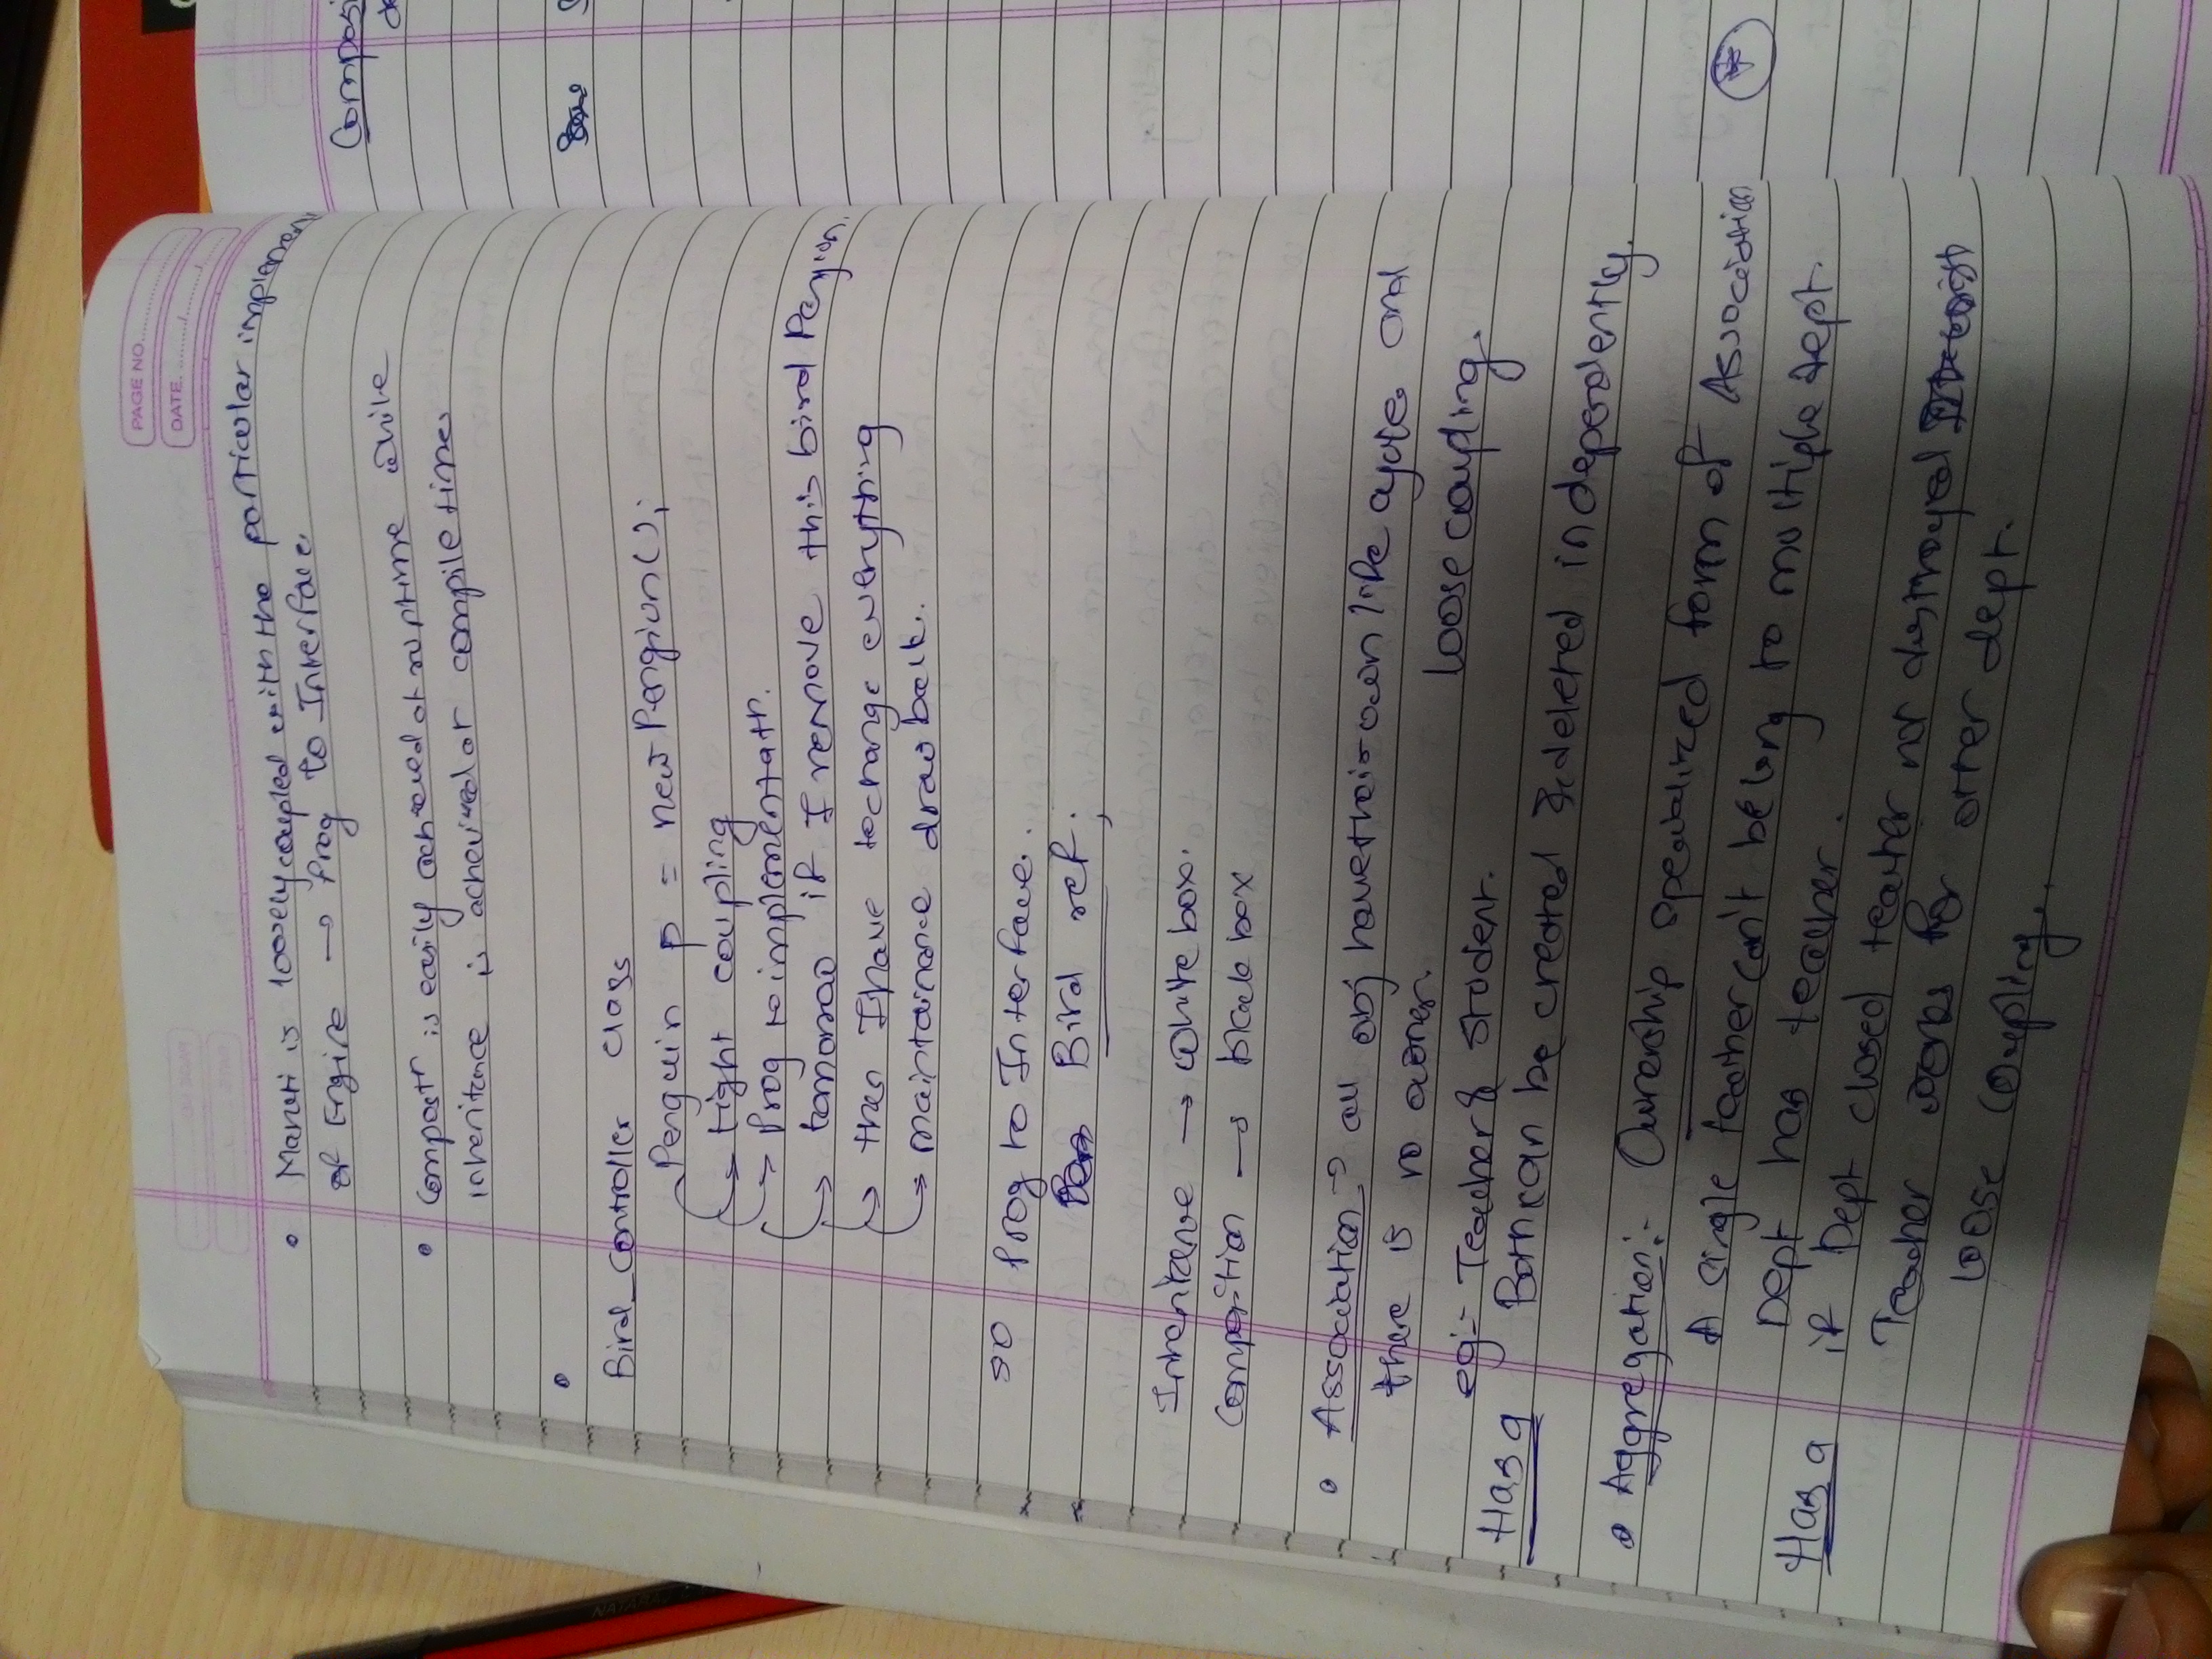 PAGE NO.
DATE. ........./........./.........
• Maruti is loosely coupled with the particular implement
of Engine → Prog to Interface.
• Compostn is easily acheived at runtime while
inheritance is acheived at compile time
•
Bird_Controller class
Penguin p = new Pengion();
→ tight coupling
→ Prog to implementatn.
→ tomorrao if I remove this bird Pengion.
→ then I have to change everything
→ maintainance draw back..
so Prog to Interface.
Bird ref;
Inheritance → White box.
Composition → black box
• Association → all obj have their own life cycle and
there is no owner.
loose coupling.
eg:- Teacher & Student.
Has a Both can be created & deleted independently.
• Aggregation:- Ownership specialized form of Association
A single teacher can't belong to multiple dept.
Dept has teacher.
Has a if Dept closed teacher not destroyed
Teacher works for other dept.
loose coupling.
Composi